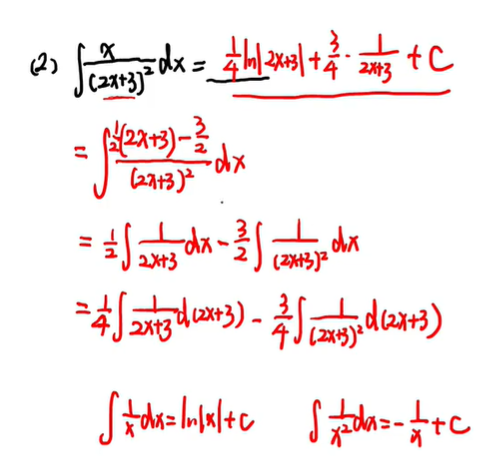 (2) ∫ x/(2x+3)² dx = 1/4 ln|2x+3| + 3/4 · 1/(2x+3) + C
= ∫ (1/2(2x+3) - 3/2)/(2x+3)² dx
= 1/2 ∫ 1/(2x+3) dx - 3/2 ∫ 1/(2x+3)² dx
= 1/4 ∫ 1/(2x+3) d(2x+3) - 3/4 ∫ 1/(2x+3)² d(2x+3)
∫ 1/x dx = ln|x| + C ∫ 1/x² dx = - 1/x + C